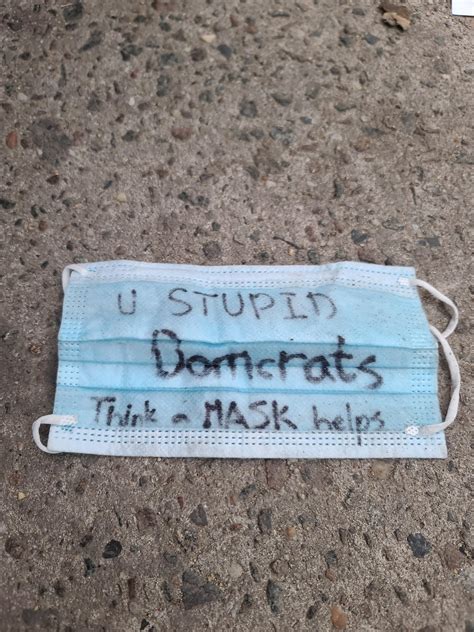 U STUPID
Domcrats
Think a MASK helps